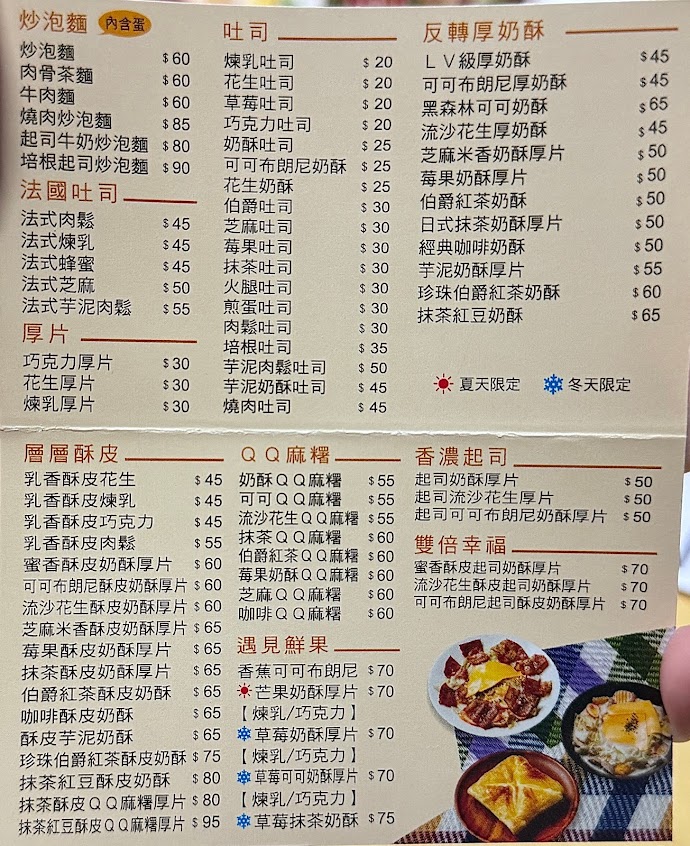 炒泡麵 內含蛋
炒泡麵 $60
肉骨茶麵 $60
牛肉麵 $60
燒肉炒泡麵 $85
起司牛奶炒泡麵 $80
培根起司炒泡麵 $90
法國吐司
法式肉鬆 $45
法式煉乳 $45
法式蜂蜜 $45
法式芝麻 $50
法式芋泥肉鬆 $55
厚片
巧克力厚片 $30
花生厚片 $30
煉乳厚片 $30
吐司
煉乳吐司 $20
花生吐司 $20
草莓吐司 $20
巧克力吐司 $20
奶酥吐司 $25
可可布朗尼奶酥 $25
花生奶酥 $25
伯爵吐司 $30
芝麻吐司 $30
莓果吐司 $30
抹茶吐司 $30
火腿吐司 $30
煎蛋吐司 $30
肉鬆吐司 $30
培根吐司 $35
芋泥肉鬆吐司 $50
芋泥奶酥吐司 $45
燒肉吐司 $45
反轉厚奶酥
ＬＶ級厚奶酥 $45
可可布朗尼厚奶酥 $45
黑森林可可奶酥 $65
流沙花生厚奶酥 $45
芝麻米香奶酥厚片 $50
莓果奶酥厚片 $50
伯爵紅茶奶酥 $50
日式抹茶奶酥厚片 $50
經典咖啡奶酥 $50
芋泥奶酥厚片 $55
珍珠伯爵紅茶奶酥 $60
抹茶紅豆奶酥 $65
夏天限定 冬天限定
層層酥皮
乳香酥皮花生 $45
乳香酥皮煉乳 $45
乳香酥皮巧克力 $45
乳香酥皮肉鬆 $55
蜜香酥皮奶酥厚片 $60
可可布朗尼酥皮奶酥厚片 $60
流沙花生酥皮奶酥厚片 $60
芝麻米香酥皮奶酥厚片 $65
莓果酥皮奶酥厚片 $65
抹茶酥皮奶酥厚片 $65
伯爵紅茶酥皮奶酥 $65
咖啡酥皮奶酥 $65
酥皮芋泥奶酥 $65
珍珠伯爵紅茶酥皮奶酥 $75
抹茶紅豆酥皮奶酥 $80
抹茶酥皮ＱＱ麻糬厚片 $80
抹茶紅豆酥皮ＱＱ麻糬厚片 $95
ＱＱ麻糬
奶酥ＱＱ麻糬 $55
可可ＱＱ麻糬 $55
流沙花生ＱＱ麻糬 $55
抹茶ＱＱ麻糬 $60
伯爵紅茶ＱＱ麻糬 $60
莓果奶酥ＱＱ麻糬 $60
芝麻ＱＱ麻糬 $60
咖啡ＱＱ麻糬 $60
遇見鮮果
香蕉可可布朗尼 $70
芒果奶酥厚片 $70
【煉乳/巧克力】
草莓奶酥厚片 $70
【煉乳/巧克力】
草莓可可奶酥厚片 $70
【煉乳/巧克力】
草莓抹茶奶酥 $75
香濃起司
起司奶酥厚片 $50
起司流沙花生厚片 $50
起司可可布朗尼奶酥厚片 $50
雙倍幸福
蜜香酥皮起司奶酥厚片 $70
流沙花生酥皮起司奶酥厚片 $70
可可布朗尼起司酥皮奶酥厚片 $70